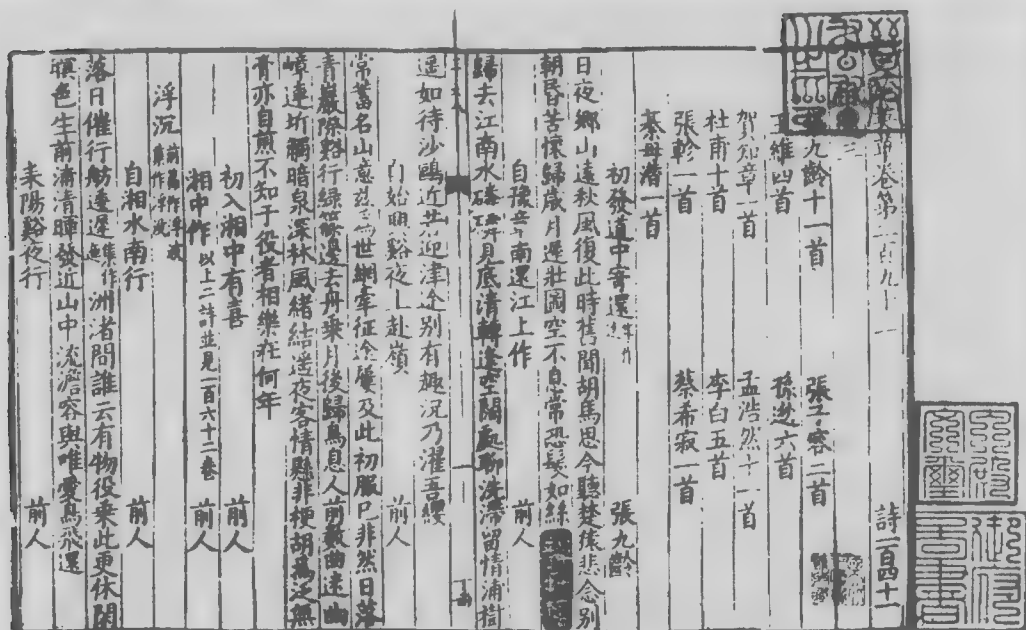 華卷第二百九十一 詩一百四十一
九齡十一首 張子容二首
王維四首 孫逖六首
賀知章一首 孟浩然十一首
杜甫十首 李白五首
張軫一首 蔡希寂一首
綦毋潛一首
初發道中寄遠 張九齡
日夜鄉山遠秋風復此時舊聞胡馬思今聽楚猿悲念別
朝昏苦懷歸歲月遲壯圖空不息常恐髮如絲
自豫章南還江上作 前人
歸去江南水磷磷見底清轉逢空闊處聊洗滯留情浦樹
遥如待沙鷗近共迎津途別有趣況乃濯吾纓
自始興谿夜上赴嶺 前人
常蓄名山意茲爲世網牽征途屢及此初服已非然日落
青巖際谿行綠篠邊去舟乘月後歸鳥息人前數曲迷幽
嶂連圻觸暗泉深林風緒結遥夜客情懸非梗胡爲泛無
膏亦自煎不知于役者相樂在何年
初入湘中有喜 前人
湘中作 以上二詩並見一百六十二卷 前人
浮沉 前篇作浮波 集作浮沉
自湘水南行 前人
落日催行舫逶遲 集作 洲渚間誰云有物役乘此更休閒
暝色生前浦清暉發近山中流澹容與唯愛鳥飛還
耒陽谿夜行 前人